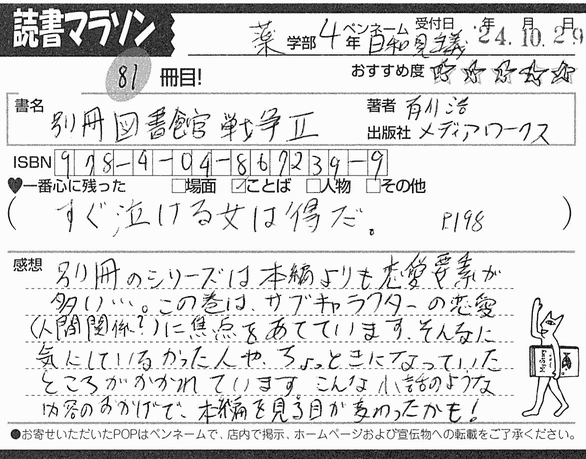 読書マラソン
薬学部4年 ペンネーム 日和見主義 受付日 '24年10月29日
81冊目! おすすめ度 ☆☆☆☆☆
書名 別冊図書館戦争Ⅱ 著者 有川浩
出版社 メディアワークス
ISBN 978-4-04-867239-9
♥一番心に残った □場面 ☑ことば □人物 □その他
(すぐ泣ける女は得だ。 P198)
感想 別冊のシリーズは本編よりも恋愛要素が
多い…。この巻は、サブキャラクターの恋愛
(人間関係?)に焦点をあてています。そんなに
気にしていなかった人や、ちょっときになっていた
ところがかかれています。こんな小話のような
内容のおかげで、本編を見る目が変わったかも!
●お寄せいただいたPOPはペンネームで、店内で掲示、ホームページおよび宣伝物への転載をご了承ください。